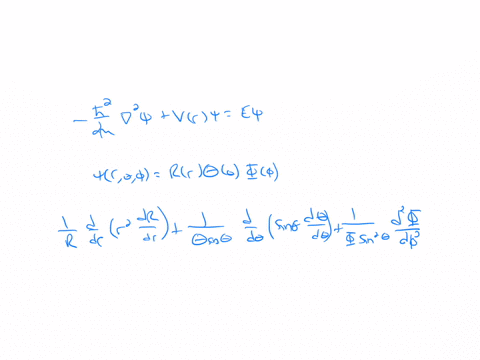 -ħ²/2m ∇²ψ + V(r)ψ = Eψ
ψ(r,θ,φ) = R(r)Θ(θ) Φ(φ)
1/R d/dr (r² dR/dr) + 1/(Θ sinθ) d/dθ (sinθ dΘ/dθ) + 1/(Φ sin²θ) d²Φ/dφ²